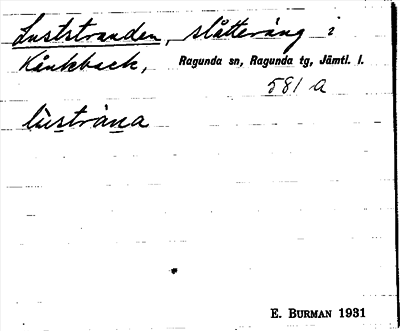 Luststranden, slåtteräng i
Kånkback, Ragunda sn, Ragunda tg, Jämtl. l.
581 a
lùstràna
E. BURMAN 1931